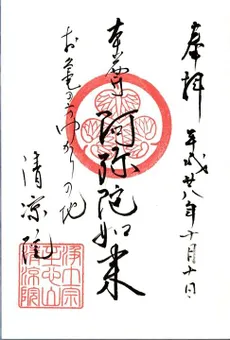 奉拝
平成廿八年十月十日
本尊
阿弥陀如来
お亀のゆかりの地
清凉院
浄土宗
清凉院